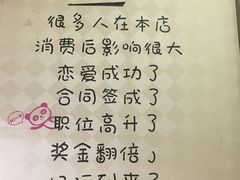 很多人在本店
消费后影响很大
恋爱成功了
合同签成了
职位高升了
奖金翻倍了